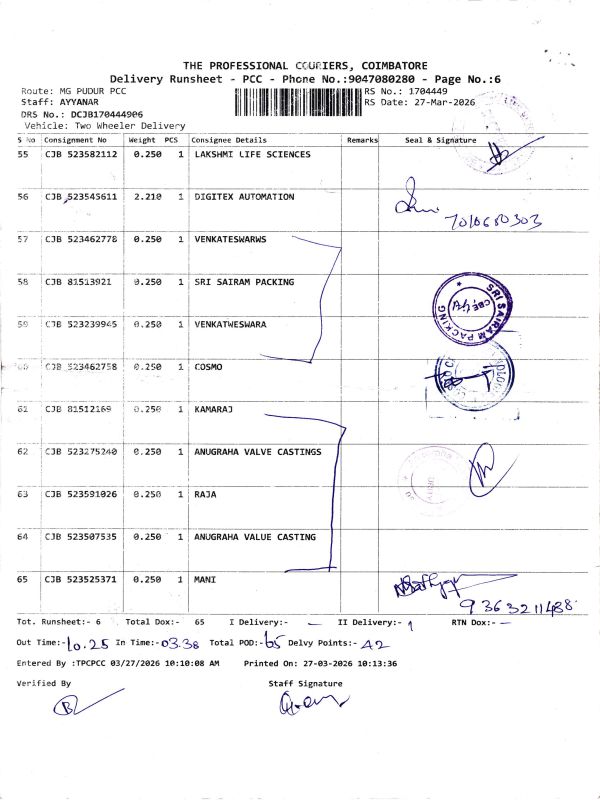 THE PROFESSIONAL COURIERS, COIMBATORE
Delivery Runsheet - PCC - Phone No.:9047080280 - Page No.:6
Route: MG PUDUR PCC
Staff: AYYANAR
DRS No.: DCJB170444906
Vehicle: Two Wheeler Delivery
RS No.: 1704449
RS Date: 27-Mar-2026
S No Consignment No Weight PCS Consignee Details Remarks Seal & Signature
55 CJB 523582112 0.250 1 LAKSHMI LIFE SCIENCES
56 CJB 523545611 2.210 1 DIGITEX AUTOMATION
7010680303
57 CJB 523462778 0.250 1 VENKATESWARWS
58 CJB 81513921 0.250 1 SRI SAIRAM PACKING
SRI SAIRAM PACKING
59 CJB 523239945 0.250 1 VENKATWESWARA
60 CJB 523462758 0.250 1 COSMO
61 CJB 81512169 0.250 1 KAMARAJ
62 CJB 523275240 0.250 1 ANUGRAHA VALVE CASTINGS
63 CJB 523591026 0.250 1 RAJA
64 CJB 523507535 0.250 1 ANUGRAHA VALUE CASTING
65 CJB 523525371 0.250 1 MANI
9363211488
Tot. Runsheet:- 6 Total Dox:- 65 I Delivery:- — II Delivery:- 1 RTN Dox:- —
Out Time:- 10.25 In Time:- 03.38 Total POD:- 65 Delvy Points:- 42
Entered By :TPCPCC 03/27/2026 10:10:08 AM Printed On: 27-03-2026 10:13:36
Verified By Staff Signature